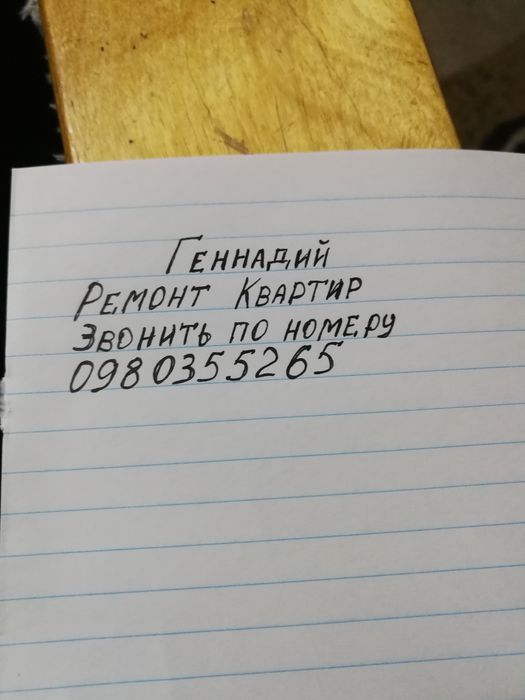 Геннадий
Ремонт Квартир
Звонить по номеру
0980355265